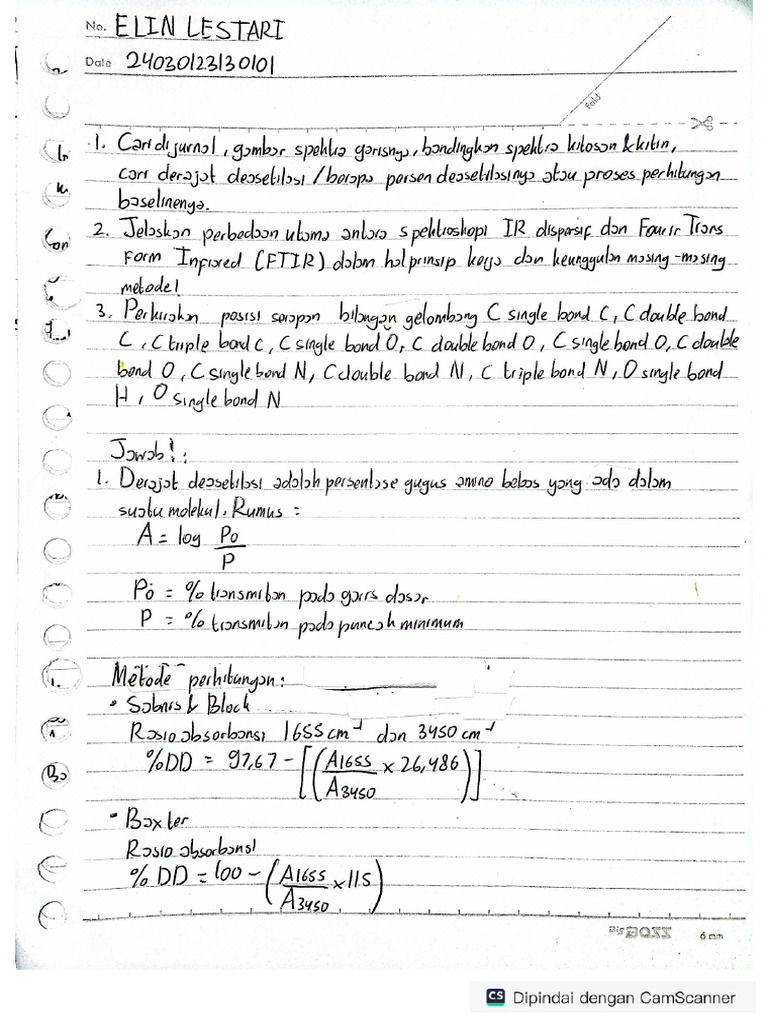 No. ELIN LESTARI
Date 24030123130101
Fold
1. Cari di jurnal, gambar spektra garisnya, bandingkan spektra kitosan & kitin,
cari derajat deasetilasi / berapa persen deasetilasinya atau proses perhitungan
baselinenya.
2. Jelaskan perbedaan utama antara spektroskopi IR dispersif dan Fourir Trans
Form Infrared (FTIR) dalam hal prinsip kerja dan keunggulan masing-masing
metode!
3. Perkirakan posisi serapan bilangan gelombang C single bond C, C double bond
C, C triple bond C, C single bond O, C double bond O, C single bond O, C double
bond O, C single bond N, C double bond N, C triple bond N, O single bond
H, O single bond N
Jawab!:
1. Derajat deasetilasi adalah persentase gugus amino bebas yang ada dalam
suatu molekul. Rumus :
A = log Po
P
Po = % transmitan pada garis dasar
P = % transmitan pada puncak minimum
Metode perhitungan:
• Sabnis & Block
Rasio absorbansi 1655 cm⁻¹ dan 3450 cm⁻¹
%DD = 97,67 - [(A1655 × 26,486)]
A3450
• Baxter
Rasio absorbansi
% DD = 100 - (A1655 × 115)
A3450
Big BOSS 6 mm
CS Dipindai dengan CamScanner